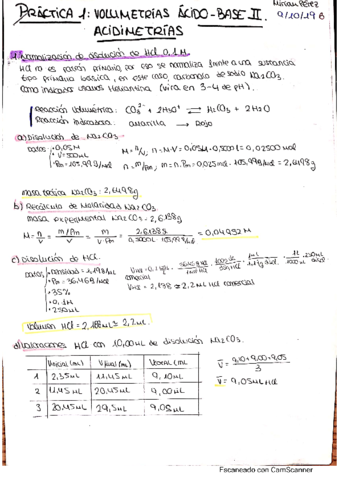 PRÁCTICA 1: VOLUMETRÍAS ÁCIDO-BASE II.
ACIDIMETRÍAS
Miriam Pérez
9/10/19 B
1. Normalización de disolución de HCl 0,1M
HCl no es patrón primario por eso se normaliza frente a una sustancia
tipo primario básica, en este caso carbonato de sodio Na2CO3.
Como indicador usamos Heliantina (vira en 3-4 de pH).
Reacción Volumétrica: CO3²⁻ + 2H3O⁺ → H2CO3 + 2H2O
Reacción indicadora: amarilla → Rojo
a) Disolución de Na2CO3
Datos: · 0,05M
· V=500mL
· Pm=105,99 g/mol
M=n/V; n=M·V=0,05M·0,500L=0,02500mol
n=m/Pm; m=n·Pm=0,025mol·105,99g/mol=2,6498g
masa teórica Na2CO3 = 2,6498g
b) Recálculo de Molaridad Na2CO3.
masa experimental Na2CO3 = 2,6138g
M = n/V = m/Pm/V = m/V·Pm = = 0,04932M
c) Disolución de HCl.
Datos: · densidad = 1,19g/mL
· Pm = 36,46g/mol
· 35%
· 0,1M
· 250mL
VHCl = 2,188 ≃ 2,2mL HCl comercial
Volumen HCl = 2,188mL ≃ 2,2mL
d) Valoraciones HCl con 10,00mL de disolución Na2CO3.
Vinicial (mL) Vfinal (mL) Vtotal (mL)
1 2,35mL 11,45mL 9,10mL
2 11,45mL 20,45mL 9,00mL
3 20,45mL 29,5mL 9,05mL
V̄ = 9,10+9,00+9,05 / 3
V̄ = 9,05mL HCl
Escaneado con CamScanner